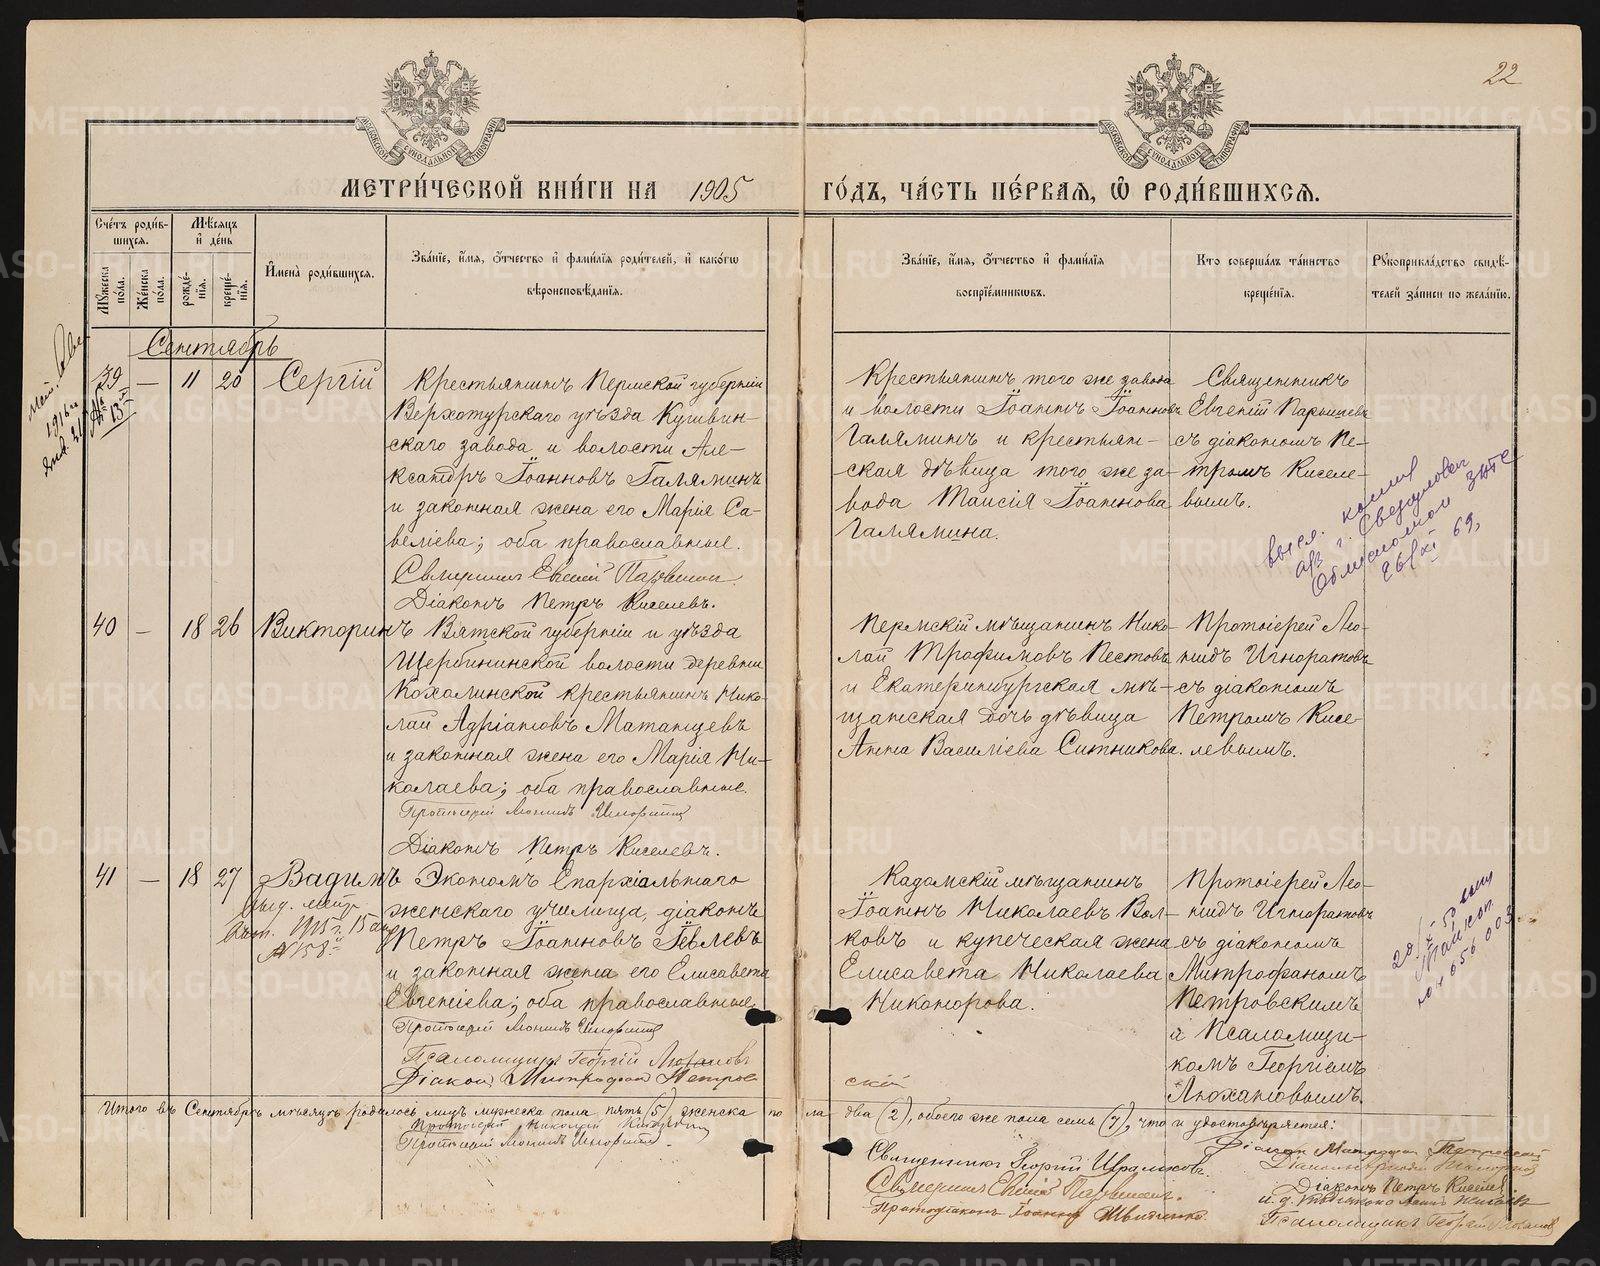 22
МОСКОВСКОЙ СѴНОДАЛЬНОЙ ТИПОГРАФІИ
МОСКОВСКОЙ СѴНОДАЛЬНОЙ ТИПОГРАФІИ
МЕТРИ́ЧЕСКОЙ КНИ́ГИ НА 1905 ГО́ДЪ, ЧА́СТЬ ПЕ́РВАЯ, Ѡ РОДИ́ВШИХСЯ.
Сче́тъ роди́вшихся.
Му́жеска по́ла.
Же́нска по́ла.
Мѣ́сяцъ и де́нь
рожде́нія.
креще́нія.
И́мена роди́вшихся.
Зва́ніе, и́мя, о́тчество и фами́лія роди́телей, и како́гѡ
вѣроисповѣ́данія.
Зва́ніе, и́мя, о́тчество и фами́лія
воспріе́мниковъ.
Кто соверша́лъ та́инство
креще́нія.
Рукоприкла́дство свидѣ́-
телей за́писи по жела́нію.
Сентябрь
39 — 11 20 Сергій
Крестьянинъ Пермской губерніи
Верхотурскаго уѣзда Кушвин-
скаго завода и волости Але-
ксандръ Іоанновъ Галяминъ
и законная жена его Марія Са-
веліева; оба православные.
Священникъ Евгеній
Діаконъ Петръ Киселевъ.
Крестьянинъ того же завода
и волости Іоаннъ Іоанновъ
Галяминъ и крестьян-
ская дѣвица того же за-
вода Таисія Іоаннова
Галямина.
Священникъ
Евгеній
съ діакономъ Пе-
тромъ Киселе-
вымъ.
1916
40 — 18 26 Викторинъ
Вятской губерніи и уѣзда
Щербининской волости деревни
Кохалинской крестьянинъ Нико-
лай Адріановъ Матанцевъ
и законная жена его Марія Ни-
колаева; оба православные.
Протоіерей Леонидъ Игноратовъ
Діаконъ Петръ Киселевъ.
Пермскій мѣщанинъ Нико-
лай Трофимовъ Пестовъ
и Екатеринбургская мѣ-
щанская дочь дѣвица
Анна Василіева Ситникова.
Протоіерей Лео-
нидъ Игноратовъ
съ діакономъ
Петромъ Кисе-
левымъ.
41 — 18 27 Вадимъ
1915 г. 15
№ 158
Экономъ Епархіальнаго
женскаго училища, діаконъ
Петръ Іоанновъ Іевлевъ
и законная жена его Елисавета
Евгеніева; оба православные.
Протоіерей Леонидъ Игноратовъ
Псаломщикъ Георгій Люхановъ
Діаконъ Митрофанъ Петров
скій
Кадомскій мѣщанинъ
Іоаннъ Николаевъ Вол-
ковъ и купеческая жена
Елисавета Николаева
Никонорова.
Протоіерей Лео-
нидъ Игноратовъ
съ діакономъ
Митрофаномъ
Петровскимъ
и Псаломщи-
комъ Георгіемъ
Люхановымъ.
Итого въ Сентябрѣ мѣсяцѣ родилось лицъ мужеска пола пять (5), женска пола два (2), обоего же пола семь (7), что и удостовѣряется:
Протоіерей Николай
Протоіерей Леонидъ Игноратовъ.
Священникъ Георгій
Священникъ Евгеній
Протодіаконъ Іоаннъ
Діаконъ Митрофанъ Петровскій
Діаконъ Петръ Киселевъ
Псаломщикъ Георгій Люхановъ